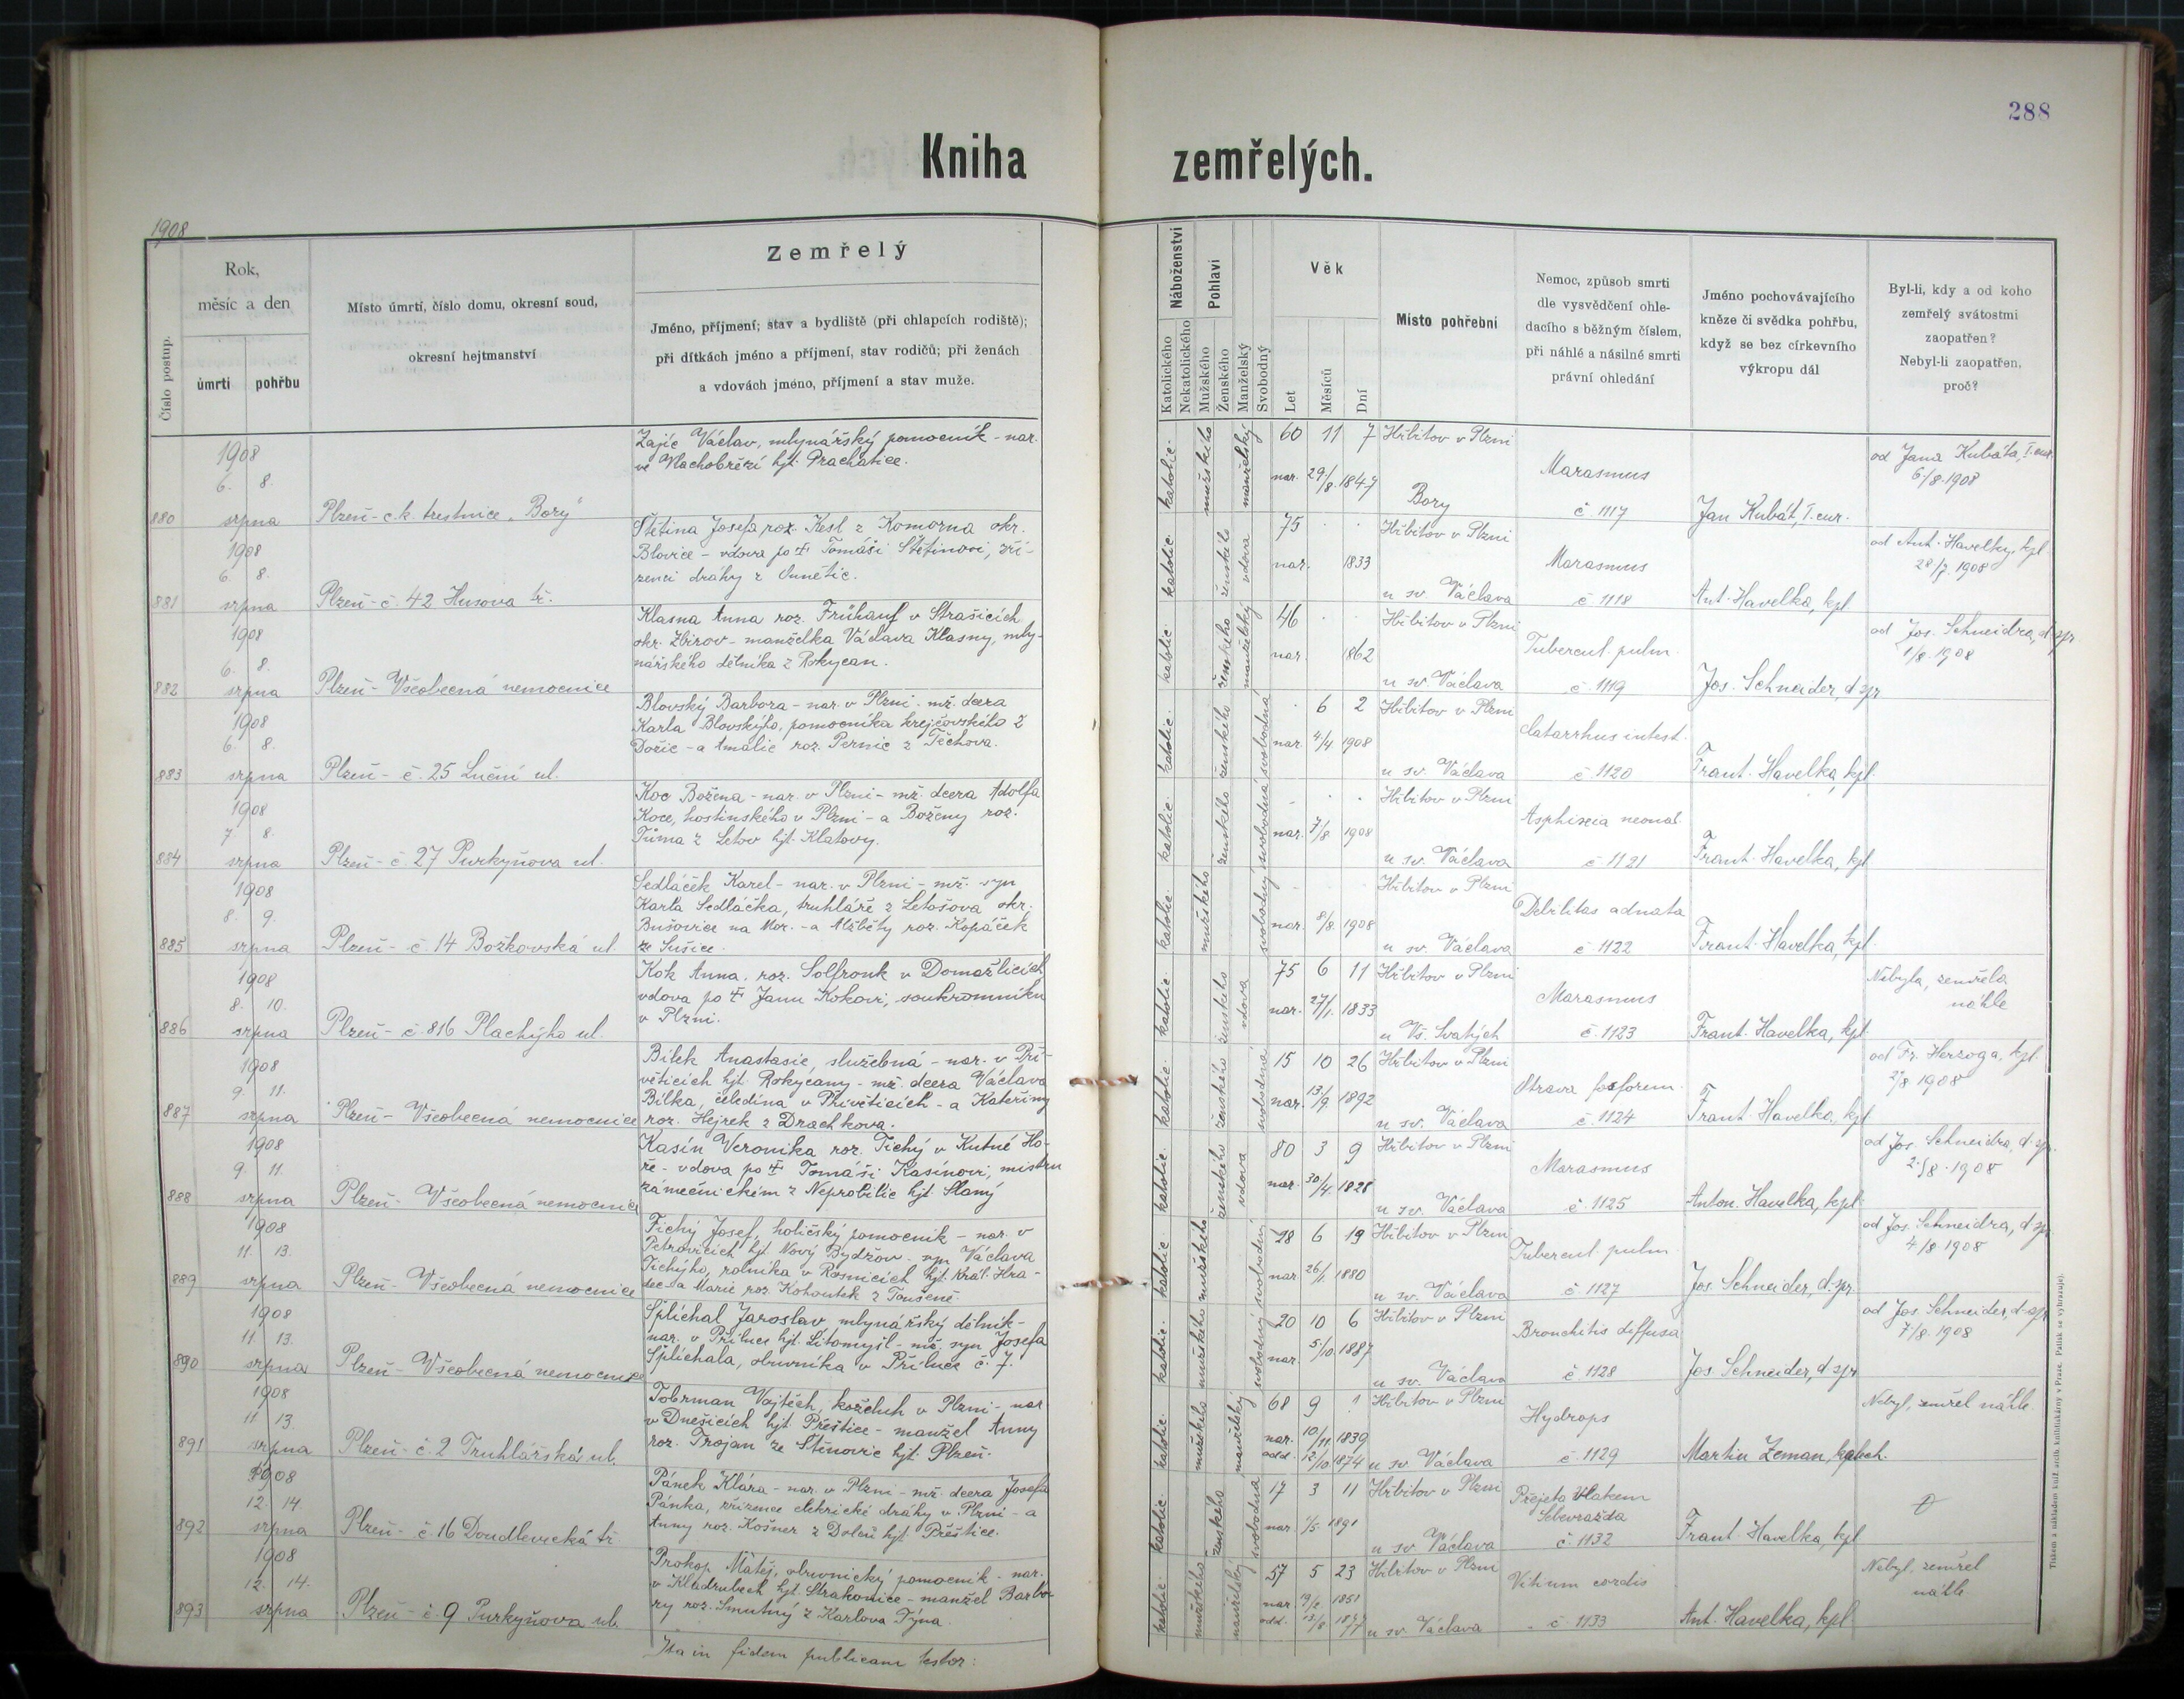 288
Kniha zemřelých.
1908
Číslo postup.
Rok,
měsíc a den
úmrtí
pohřbu
Místo úmrtí, číslo domu, okresní soud,
okresní hejtmanství
Zemřelý
Jméno, příjmení; stav a bydliště (při chlapcích rodiště);
při dítkách jméno a příjmení, stav rodičů; při ženách
a vdovách jméno, příjmení a stav muže.
Náboženství
Katolického
Nekatolického
Pohlaví
Mužského
Ženského
Manželský
Svobodný
Věk
Let
Měsíců
Dní
Místo pohřební
Nemoc, způsob smrti
dle vysvědčení ohle-
dacího s běžným číslem,
při náhlé a násilné smrti
právní ohledání
Jméno pochovávajícího
kněze či svědka pohřbu,
když se bez církevního
výkropu dál
Byl-li, kdy a od koho
zemřelý svátostmi
zaopatřen?
Nebyl-li zaopatřen,
proč?
880
1908
6. 8.
srpna
Plzeň - c.k. trestnice „Bory"
Zajíc Václav, mlynářský pomocník - nar.
ve Vlachobřezí hjt. Prachatice.
katolic. mužského manželský
60 11 7
nar. 29/8. 1847
Hřbitov v Plzni
Bory
Marasmus
č 1117
Jan Kubát, I. cur.
od Jana Kubáta, I. cur.
6/8. 1908
881
1908
6. 8.
srpna
Plzeň - č. 42 Husova tř.
Štětina Josefa roz. Kesl z Komorna okr.
Blovice - vdova po † Tomáši Štětinovi, zří-
zenci dráhy z
katolic. ženského vdova
75
nar. 1833
Hřbitov v Plzni
u sv. Václava
Marasmus
č 1118
Ant. Havelka, kpl.
od Ant. Havelky, kpl.
28/7. 1908
882
1908
6. 8.
srpna
Plzeň - Všeobecná nemocnice
Klasna Anna roz. Frühauf v Strašicích
okr. Zbirov - manželka Václava Klasny, mly-
nářského dělníka z Rokycan.
katolic. ženského manželský
46
nar. 1862
Hřbitov v Plzni
u sv. Václava
Tubercul. pulm.
č. 1119
Jos. Schneider, d. spr.
od Jos. Schneidra, d. spr.
1/8. 1908
883
1908
6. 8.
srpna
Plzeň - č. 25 Luční ul.
Blovský Barbora - nar. v Plzni - mž. dcera
Karla Blovského, pomocníka krejčovského z
- a Amalie roz. Pernic z Těchova.
katolic. ženského svobodná
6 2
nar. 4/4 1908
Hřbitov v Plzni
u sv. Václava
Catarrhus intest.
č. 1120
Frant. Havelka, kpl.
884
1908
7. 8.
srpna
Plzeň - č. 27 Purkyňova ul.
Koc Božena - nar. v Plzni - mž. dcera Adolfa
Koce, hostinského v Plzni - a Boženy roz.
Tůma z Letov hjt. Klatovy.
katolic. ženského svobodná
nar. 7/8 1908
Hřbitov v Plzni
u sv. Václava
Asphixia neonat.
č 1121
Frant. Havelka, kpl
885
1908
8. 9.
srpna
Plzeň - č. 14 Božkovská ul
Sedláček Karel - nar. v Plzni - mž. syn
Karla Sedláčka, truhláře z Letošova okr.
Bučovice na Mor. - a Alžběty roz. Kopáček
ze Sušice.
katolic. mužského svobodný
nar. 8/8. 1908
Hřbitov v Plzni
u sv. Václava
Debilitas adnata
č. 1122
Frant. Havelka, kpl.
886
1908
8. 10.
srpna
Plzeň - č. 816 Plachýho ul.
Kok Anna, roz. Solfronk v Domažlicích
vdova po † Janu Kokovi, soukromníku
v Plzni.
katolic. ženského vdova
75 6 11
nar. 27/1. 1833
Hřbitov v Plzni
u Vš. Svatých
Marasmus
č. 1123
Frant. Havelka, kpl.
Nebyla, zemřela
náhle
887
1908
9. 11.
srpna
Plzeň - Všeobecná nemocnice
Bílek Anastasie, služebná - nar. v Pří-
věticích hjt. Rokycany - mž. dcera Václava
Bílka, čeledína v Přívěticích - a Kateřiny
roz. Hejrek z Drachkova.
katolic. ženského svobodná
15 10 26
nar. 13/9. 1892
Hřbitov v Plzni
u sv. Václava
Otrava fosforem.
č. 1124
Frant. Havelka, kpl
od Fr. Herzoga, kpl.
2/8 1908
888
1908
9. 11.
srpna
Plzeň - Všeobecná nemocnice
Kasín Veronika roz. Tichý v Kutné Ho-
ře - vdova po † Tomáši Kasínovi, mistru
zámečnickém z Neprobilic hjt. Slaný
katolic. ženského vdova
80 3 9
nar. 30/4. 1828
Hřbitov v Plzni
u sv. Václava
Marasmus
č. 1125
Anton. Havelka, kpl.
od Jos. Schneidra, d. spr.
2/8. 1908
889
1908
11. 13.
srpna
Plzeň - Všeobecná nemocnice
Tichý Josef, holičský pomocník - nar. v
Petrovicích hjt. Nový Bydžov - syn Václava
Tichýho, rolníka v Rosnicích hjt. Král. Hra-
dec - a Marie roz. Kohoutek z
katolic. mužského svobodný
28 6 19
nar. 26/1. 1880
Hřbitov v Plzni
u sv. Václava
Tubercul. pulm.
č 1127
Jos. Schneider, d. spr.
od Jos. Schneidra, d. spr
4/8. 1908
890
1908
11. 13.
srpna
Plzeň - Všeobecná nemocnice
Šplíchal Jaroslav, mlynářský dělník -
nar. v Přiluce hjt. Litomyšl - mž. syn Josefa
Šplíchala, obuvníka v Příluce č. 7.
katolic. mužského svobodný
20 10 6
nar. 5/10 1887
Hřbitov v Plzni
u sv. Václava
Bronchitis diffusa
č 1128
Jos. Schneider, d. spr
od Jos. Schneider, d. spr
7/8. 1908
891
1908
11 13.
srpna
Plzeň - č. 2 Truhlářská ul.
Tobrman Vojtěch, koželuh v Plzni - nar.
v Dnešicích hjt. Přeštice - manžel Anny
roz. Trojan ze Stěnovic hjt. Plzeň.
katolic. mužského manželský
68 9 1
nar. 10/11. 1839
odd. 12/10 1874
Hřbitov v Plzni
u sv. Václava
Hydrops
č. 1129
Martin Zeman,
Nebyl, zemřel náhle.
892
1908
12. 14.
srpna
Plzeň - č. 16 Doudlevecká tř.
Pánek Klára - nar. v Plzni - mž. dcera Josefa
Pánka, zřízence elektrické dráhy v Plzni - a
Anny roz. Košner z Dolní hjt. Přeštice.
katolic. ženského svobodná
17 3 11
nar. 1/5. 1891
Hřbitov v Plzni
u sv. Václava
Přejeta vlakem
Sebevražda
č. 1132
Frant. Havelka, kpl
893
1908
12. 14.
srpna
Plzeň - č. 9 Purkyňova ul.
Prokop Matěj, obuvnický pomocník - nar.
v Kladrubech hjt. Strakonice - manžel Barbo-
ry roz. Smutný z Karlova Týna.
katolic. mužského manželský
57 5 23
nar. 19/2 1851
odd. 13/8 1877
Hřbitov v Plzni
u sv. Václava
Vitium cordis
č 1133
Ant. Havelka, kpl
Nebyl, zemřel
náhle.
Ita in fidem publicam testor:
Tiskem a nákladem kníž. arcib. knihtiskárny v Praze. Patisk se vyhrazuje.